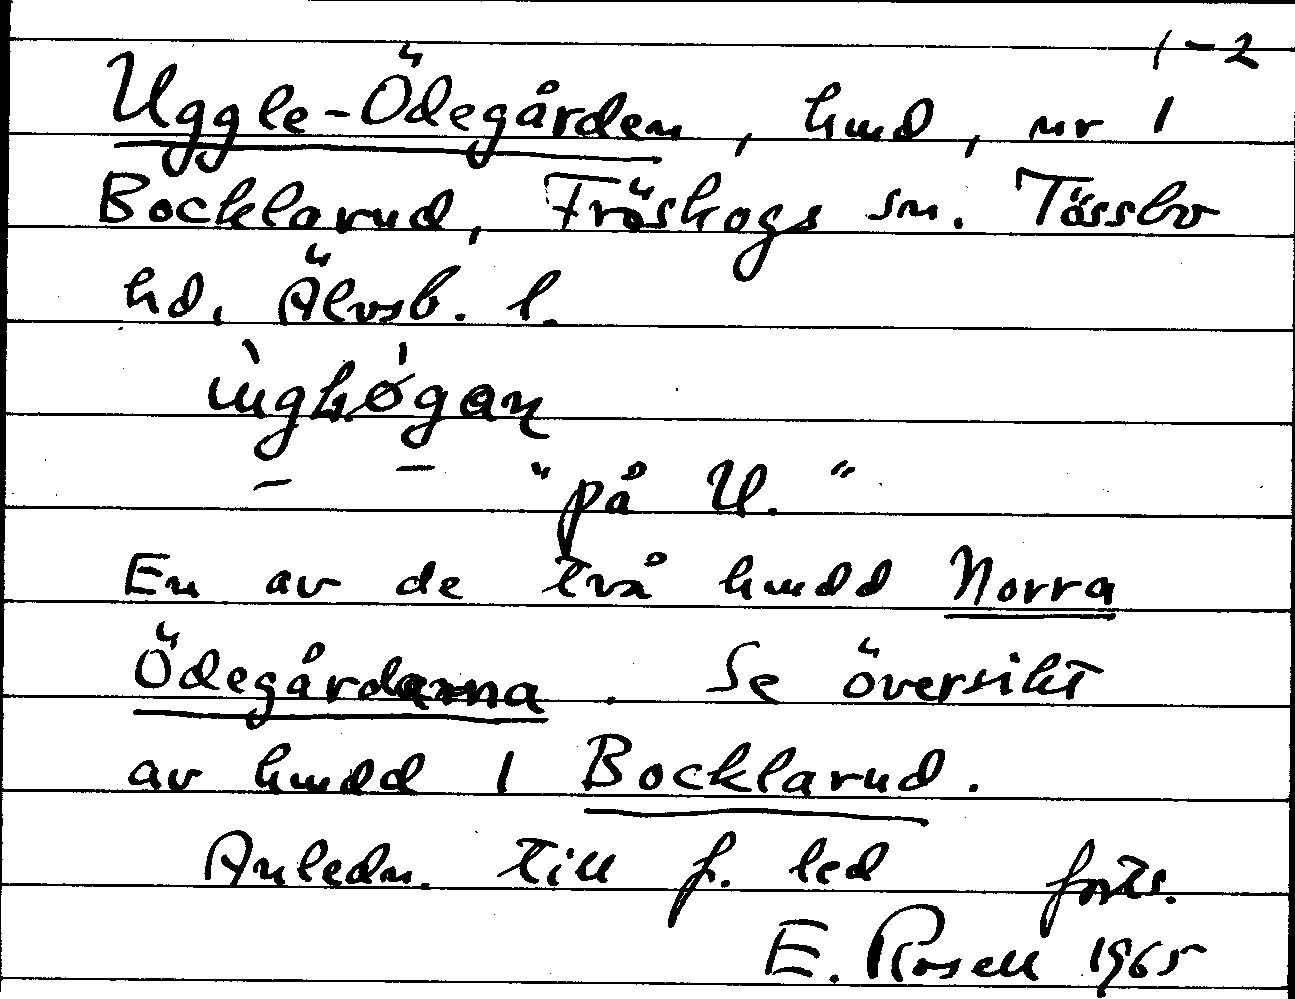 1-2
Uggle-Ödegården, hmd, nr 1
Bocklarud, Fröskogs sn. Tössbo
hd, Älvsb. l.
"på U."
En av de två hmdd Norra
Ödegårdarna. Se översikt
av hmdd 1 Bocklarud.
Anledn. till f. led forts.
E. Rosell 1965